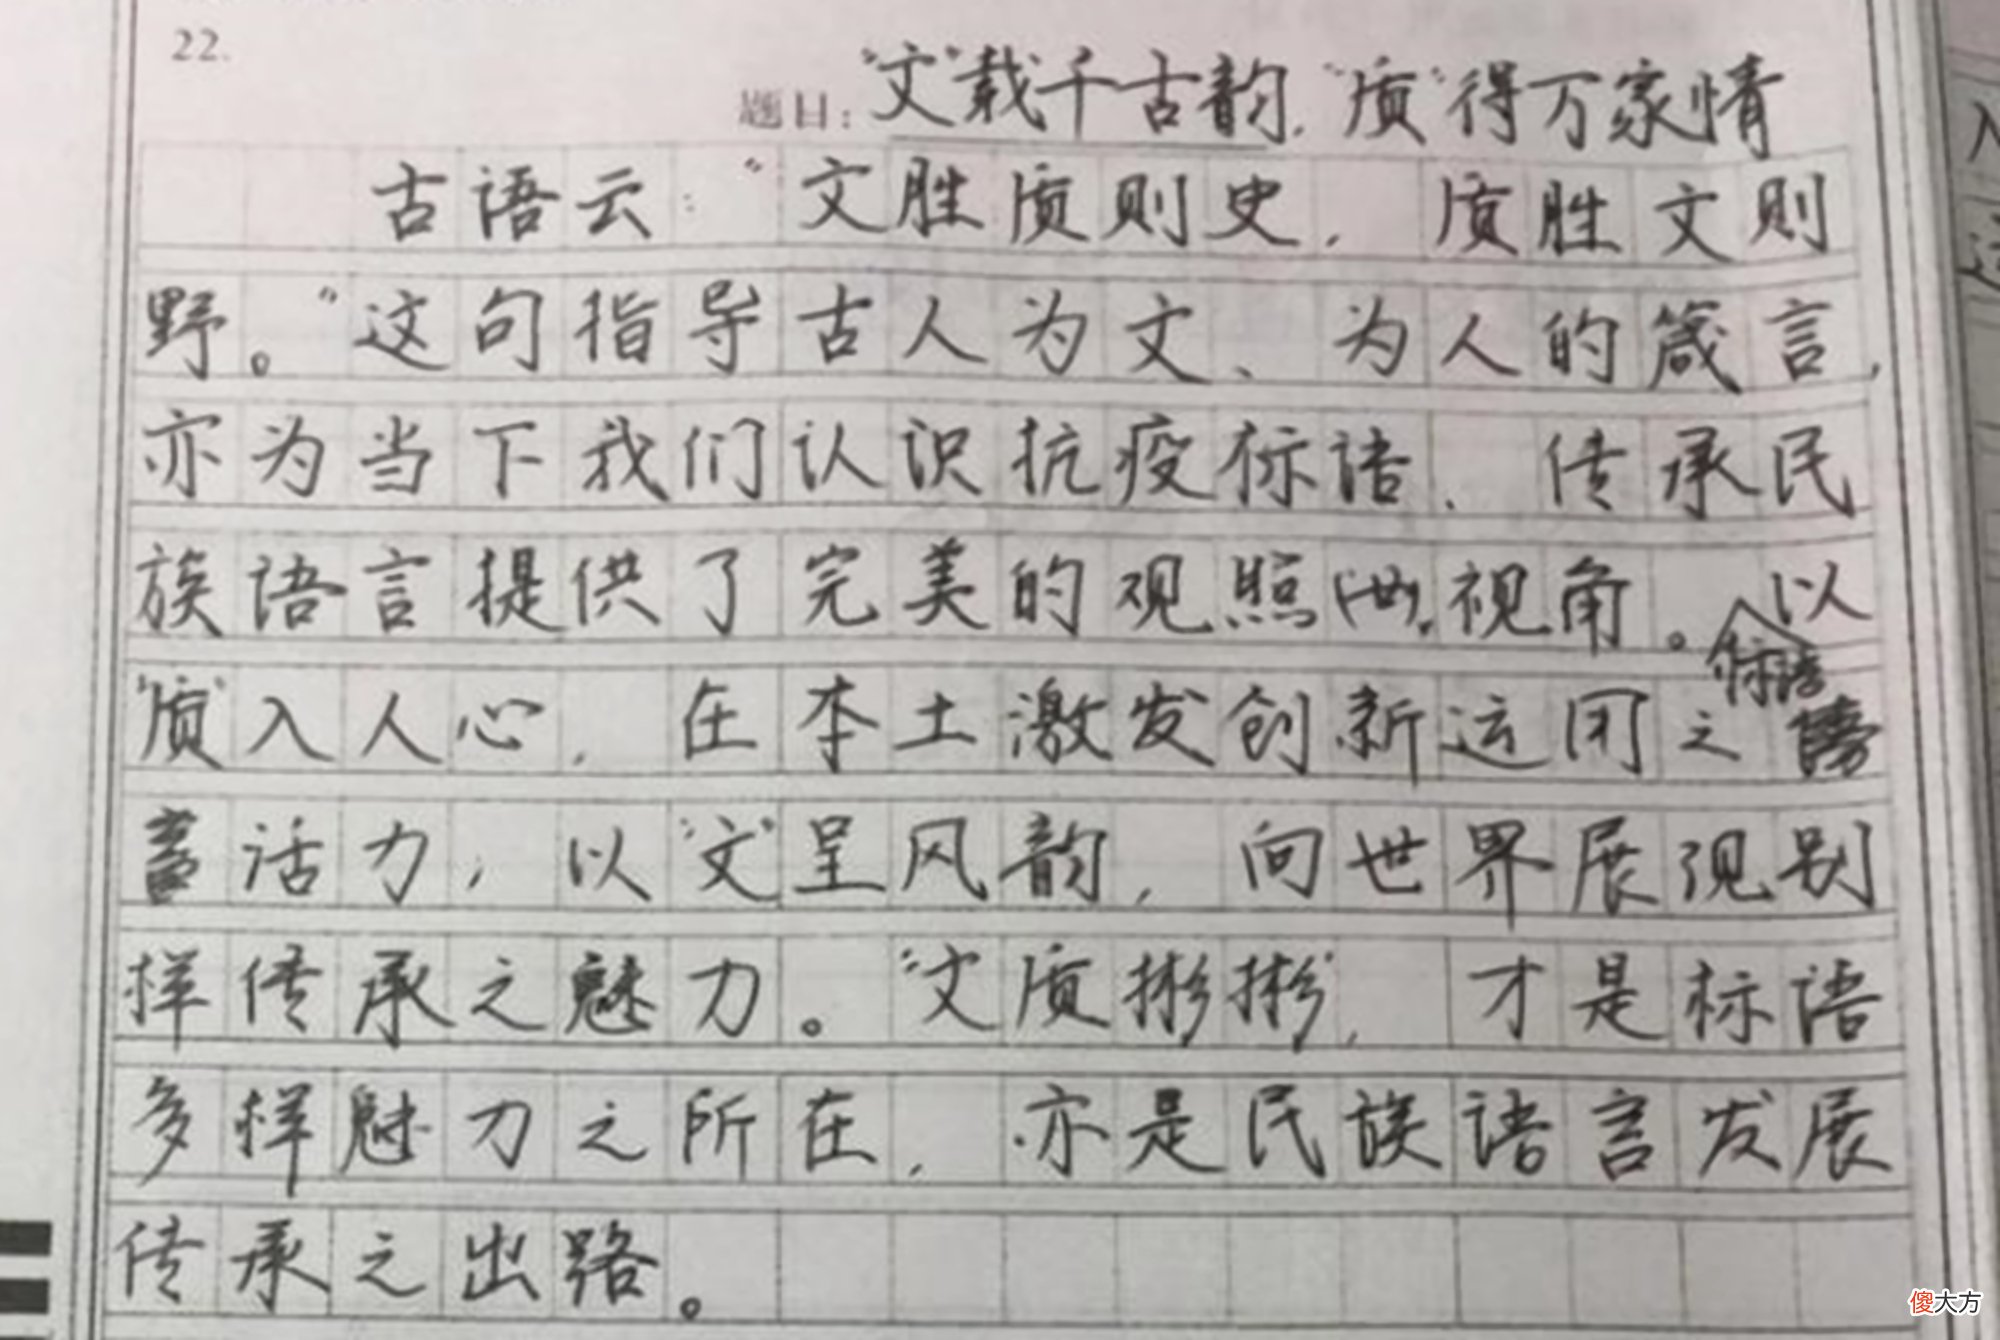 22.
题目："文"载千古韵，"质"得万家情
古语云："文胜质则史，质胜文则
野。"这句指导古人为文、为人的箴言，
亦为当下我们认识抗疫标语、传承民
族语言提供了完美的观照视角。标语以
"质"入人心，在本土激发创新运用之
活力，以"文"呈风韵，向世界展现别
样传承之魅力。"文质彬彬"，才是标语
多样魅力之所在，亦是民族语言发展
传承之出路。
傻大方